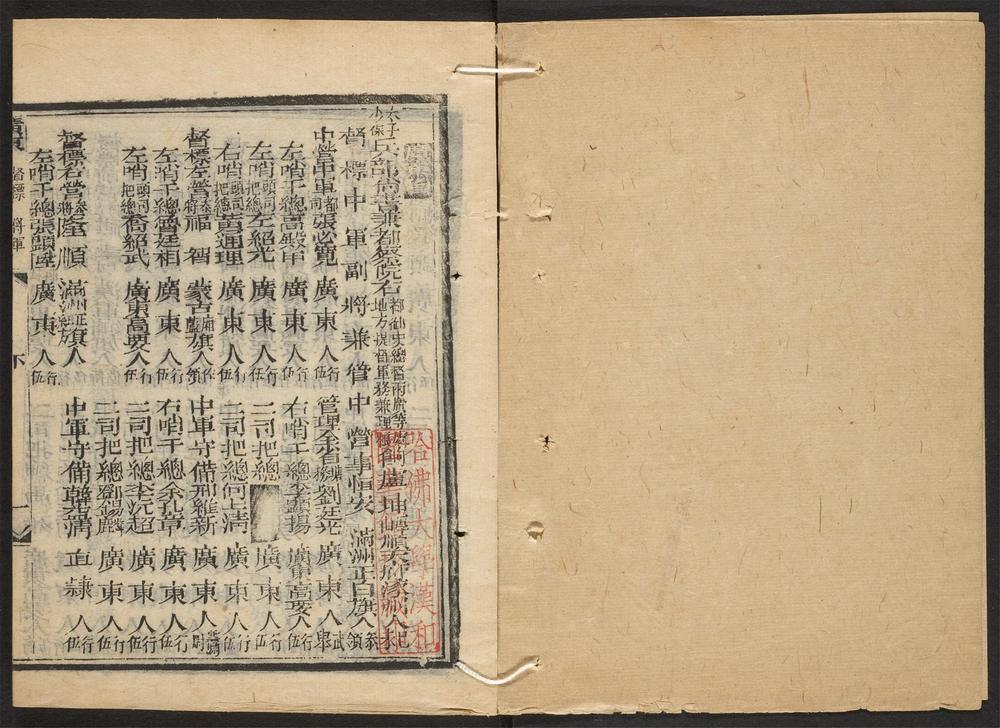 太子少保兵部尚書兼都察院右都御史總督兩廣等處地方提督軍務兼理糧餉盧坤 順天府涿州人
督標中軍副將兼管中營事恒安 滿洲正白旗人
中營中軍都司張必寬 廣東人行伍 管理 劉廷 廣東人武舉
左哨千總高殿甲 廣東人行伍 右哨千總李顯揚 廣東高要人行伍
左哨頭司把總左紹光 廣東人行伍 二司把總 廣東人行伍
右哨頭司把總黃通理 廣東人行伍 二司把總何上清 廣東人行伍
督標左營參將福智 蒙古廂藍旗人 中軍守備邢維新 廣東人
左哨千總廷相 廣東人行伍 右哨千總余孔章 廣東人行伍
左哨頭司把總喬紹武 廣東高要人行伍 二司把總李沅超 廣東人行伍
二司把總鄧錫麟 廣東人行伍
督標右營參將隆順 滿洲正旗人 中軍守備韓 直隸人行伍
左哨千總張顯 廣東人行伍
督標 將軍
下
哈佛大學漢和